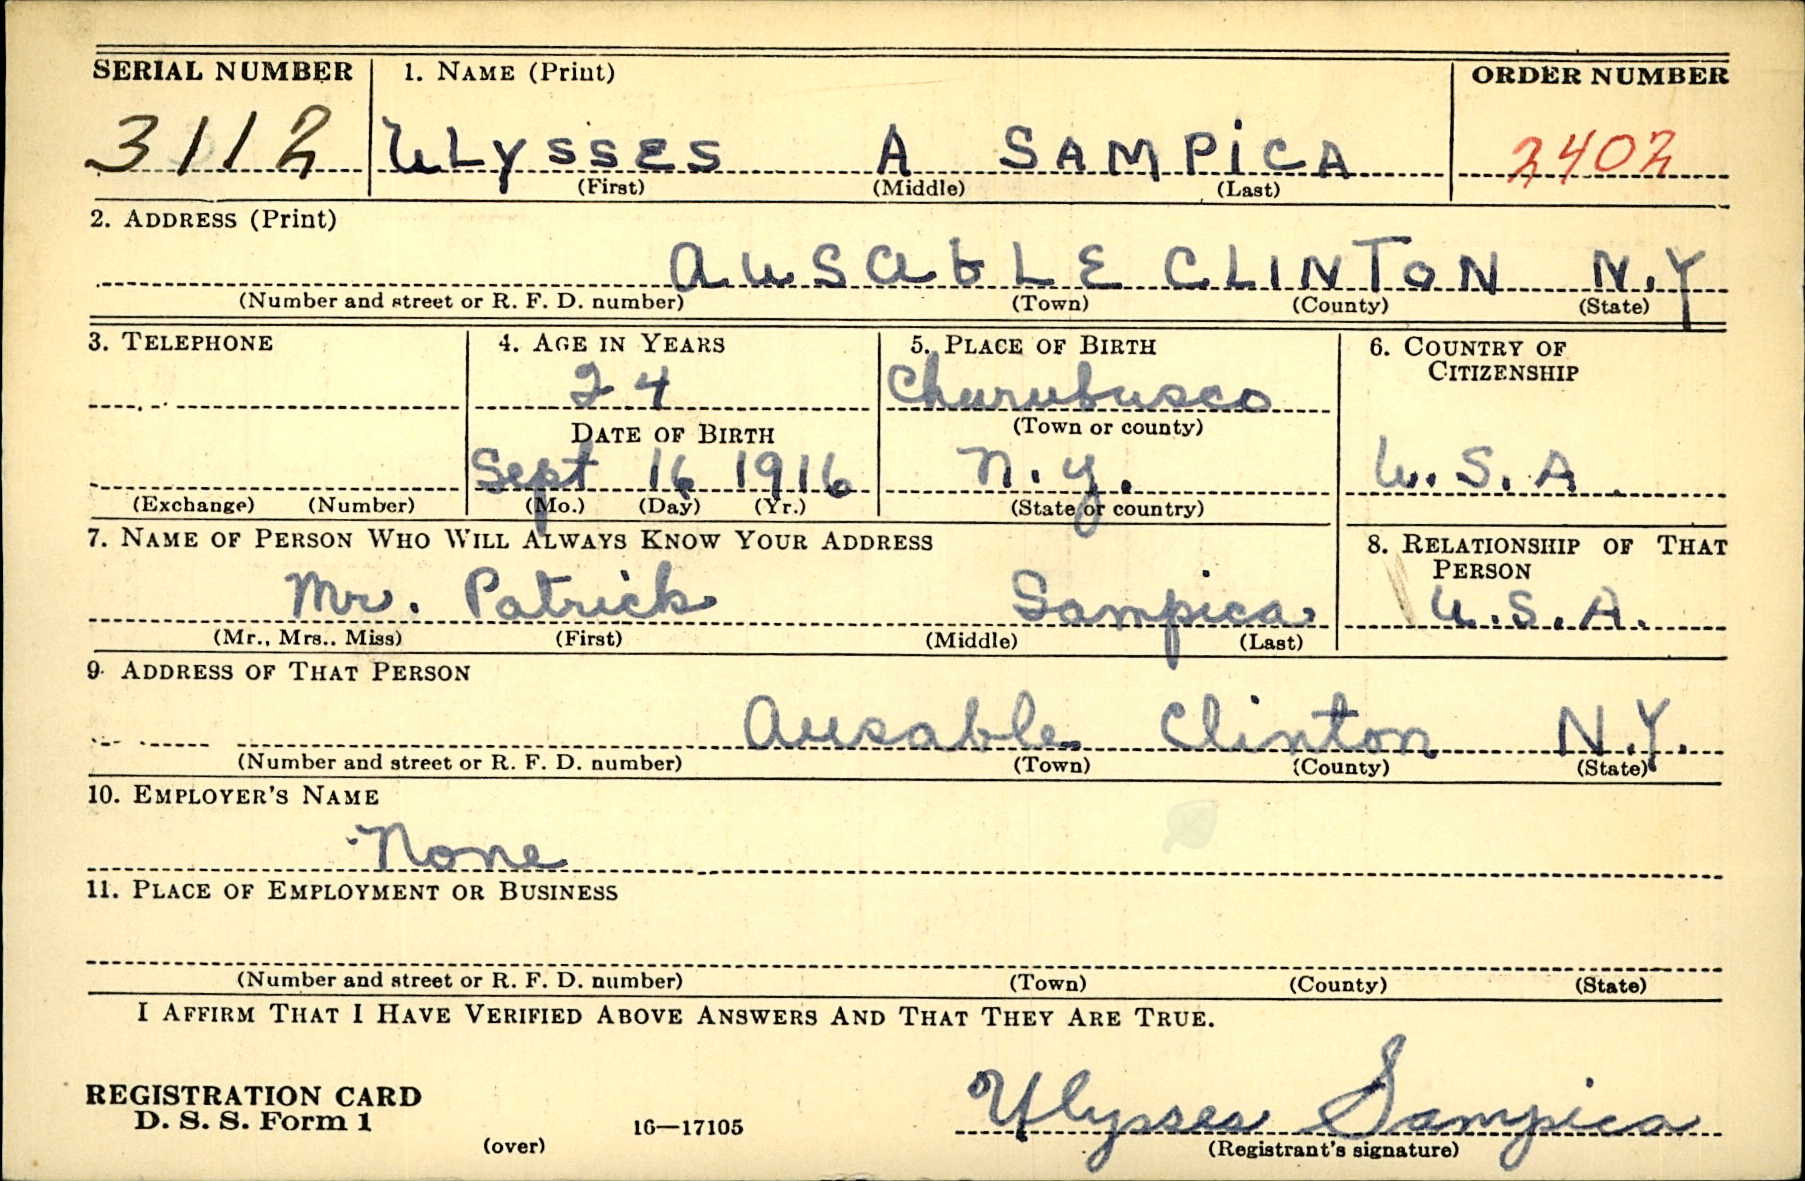 SERIAL NUMBER 1. NAME (Print) ORDER NUMBER
3112 ULYSSES A SAMPICA 2402
(First) (Middle) (Last)
2. ADDRESS (Print)
AUSABLE CLINTON N.Y
(Number and street or R. F. D. number) (Town) (County) (State)
3. TELEPHONE 4. AGE IN YEARS 5. PLACE OF BIRTH 6. COUNTRY OF
CITIZENSHIP
24 Churubusco
DATE OF BIRTH (Town or county)
Sept 16 1916 N.Y. U.S.A
(Exchange) (Number) (Mo.) (Day) (Yr.) (State or country)
7. NAME OF PERSON WHO WILL ALWAYS KNOW YOUR ADDRESS 8. RELATIONSHIP OF THAT
PERSON
Mr. Patrick Sampica U.S.A.
(Mr., Mrs., Miss) (First) (Middle) (Last)
9. ADDRESS OF THAT PERSON
Ausable Clinton N.Y.
(Number and street or R. F. D. number) (Town) (County) (State)
10. EMPLOYER'S NAME
None
11. PLACE OF EMPLOYMENT OR BUSINESS
(Number and street or R. F. D. number) (Town) (County) (State)
I AFFIRM THAT I HAVE VERIFIED ABOVE ANSWERS AND THAT THEY ARE TRUE.
REGISTRATION CARD
D. S. S. Form 1 16—17105 Ulysses Sampica
(over) (Registrant's signature)